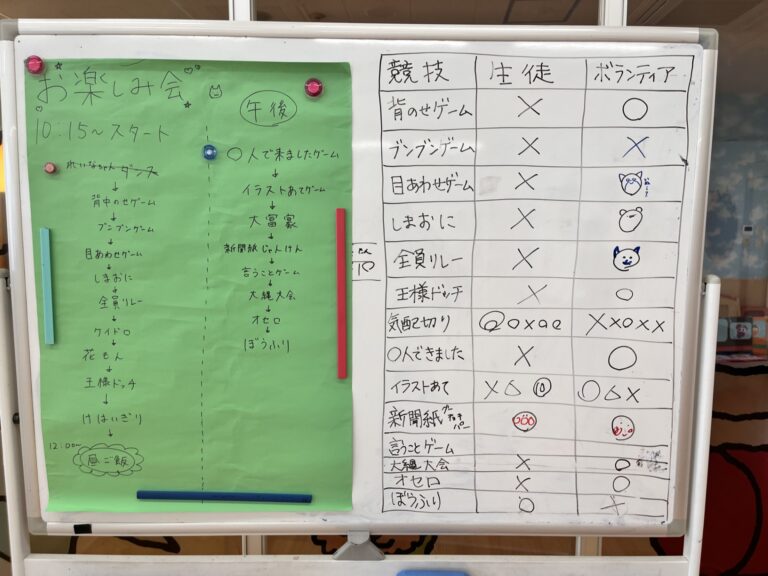 お楽しみ会
10:15〜スタート
れいなちゃん ダンス
↓
背中のせゲーム
↓
ブンブンゲーム
↓
目あわせゲーム
↓
しまおに
↓
全員リレー
↓
ケイドロ
↓
花もん
↓
王様ドッチ
↓
けはいぎり
↓
12:00
昼ご飯
午後
〇人で来ましたゲーム
↓
イラストあてゲーム
↓
大富豪
↓
新聞紙じゃんけん
↓
言うことゲーム
↓
大縄大会
↓
オセロ
↓
ぼうふり
競技 生徒 ボランティア
背のせゲーム × ○
ブンブンゲーム × ×
目あわせゲーム ×
しまおに ×
全員リレー ×
王様ドッチ × ○
気配切り ○○×○○ ××○××
〇人できました × ○
イラストあて ×△⑩ ○△×
新聞紙
言うことゲーム
大縄大会 × ○
オセロ × ○
ぼうふり ○ ×